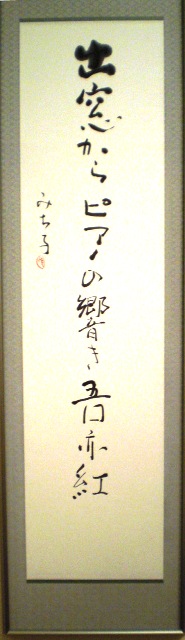 出窓からピアノの響き吾亦紅
みち子